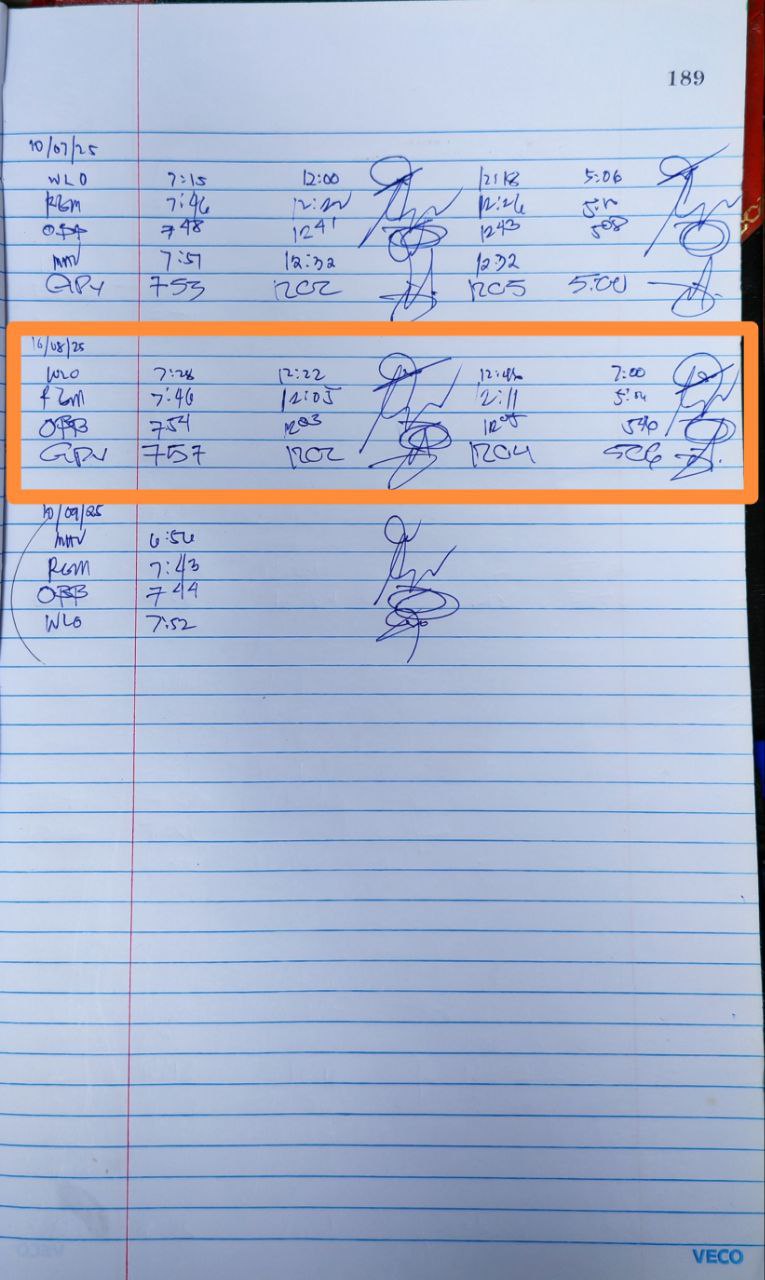 189
10/07/25
WLO 7:15 12:00 12:18 5:06
RGM 7:46 12:26
7 48 12 41 12 43 5 08
MAV 7:51 12:32 12:32
GPV 753 1202 1205 5:00
10/08/25
WLO 7:28 12:22 7:00
RGM 7:46 12:05 12:11
OBB 7 54 12 03 12 05
GPV 757 1202 1204 506
10/09/25
MAV 6:56
RGM 7:43
OBB 7 44
WLO 7:52
VECO